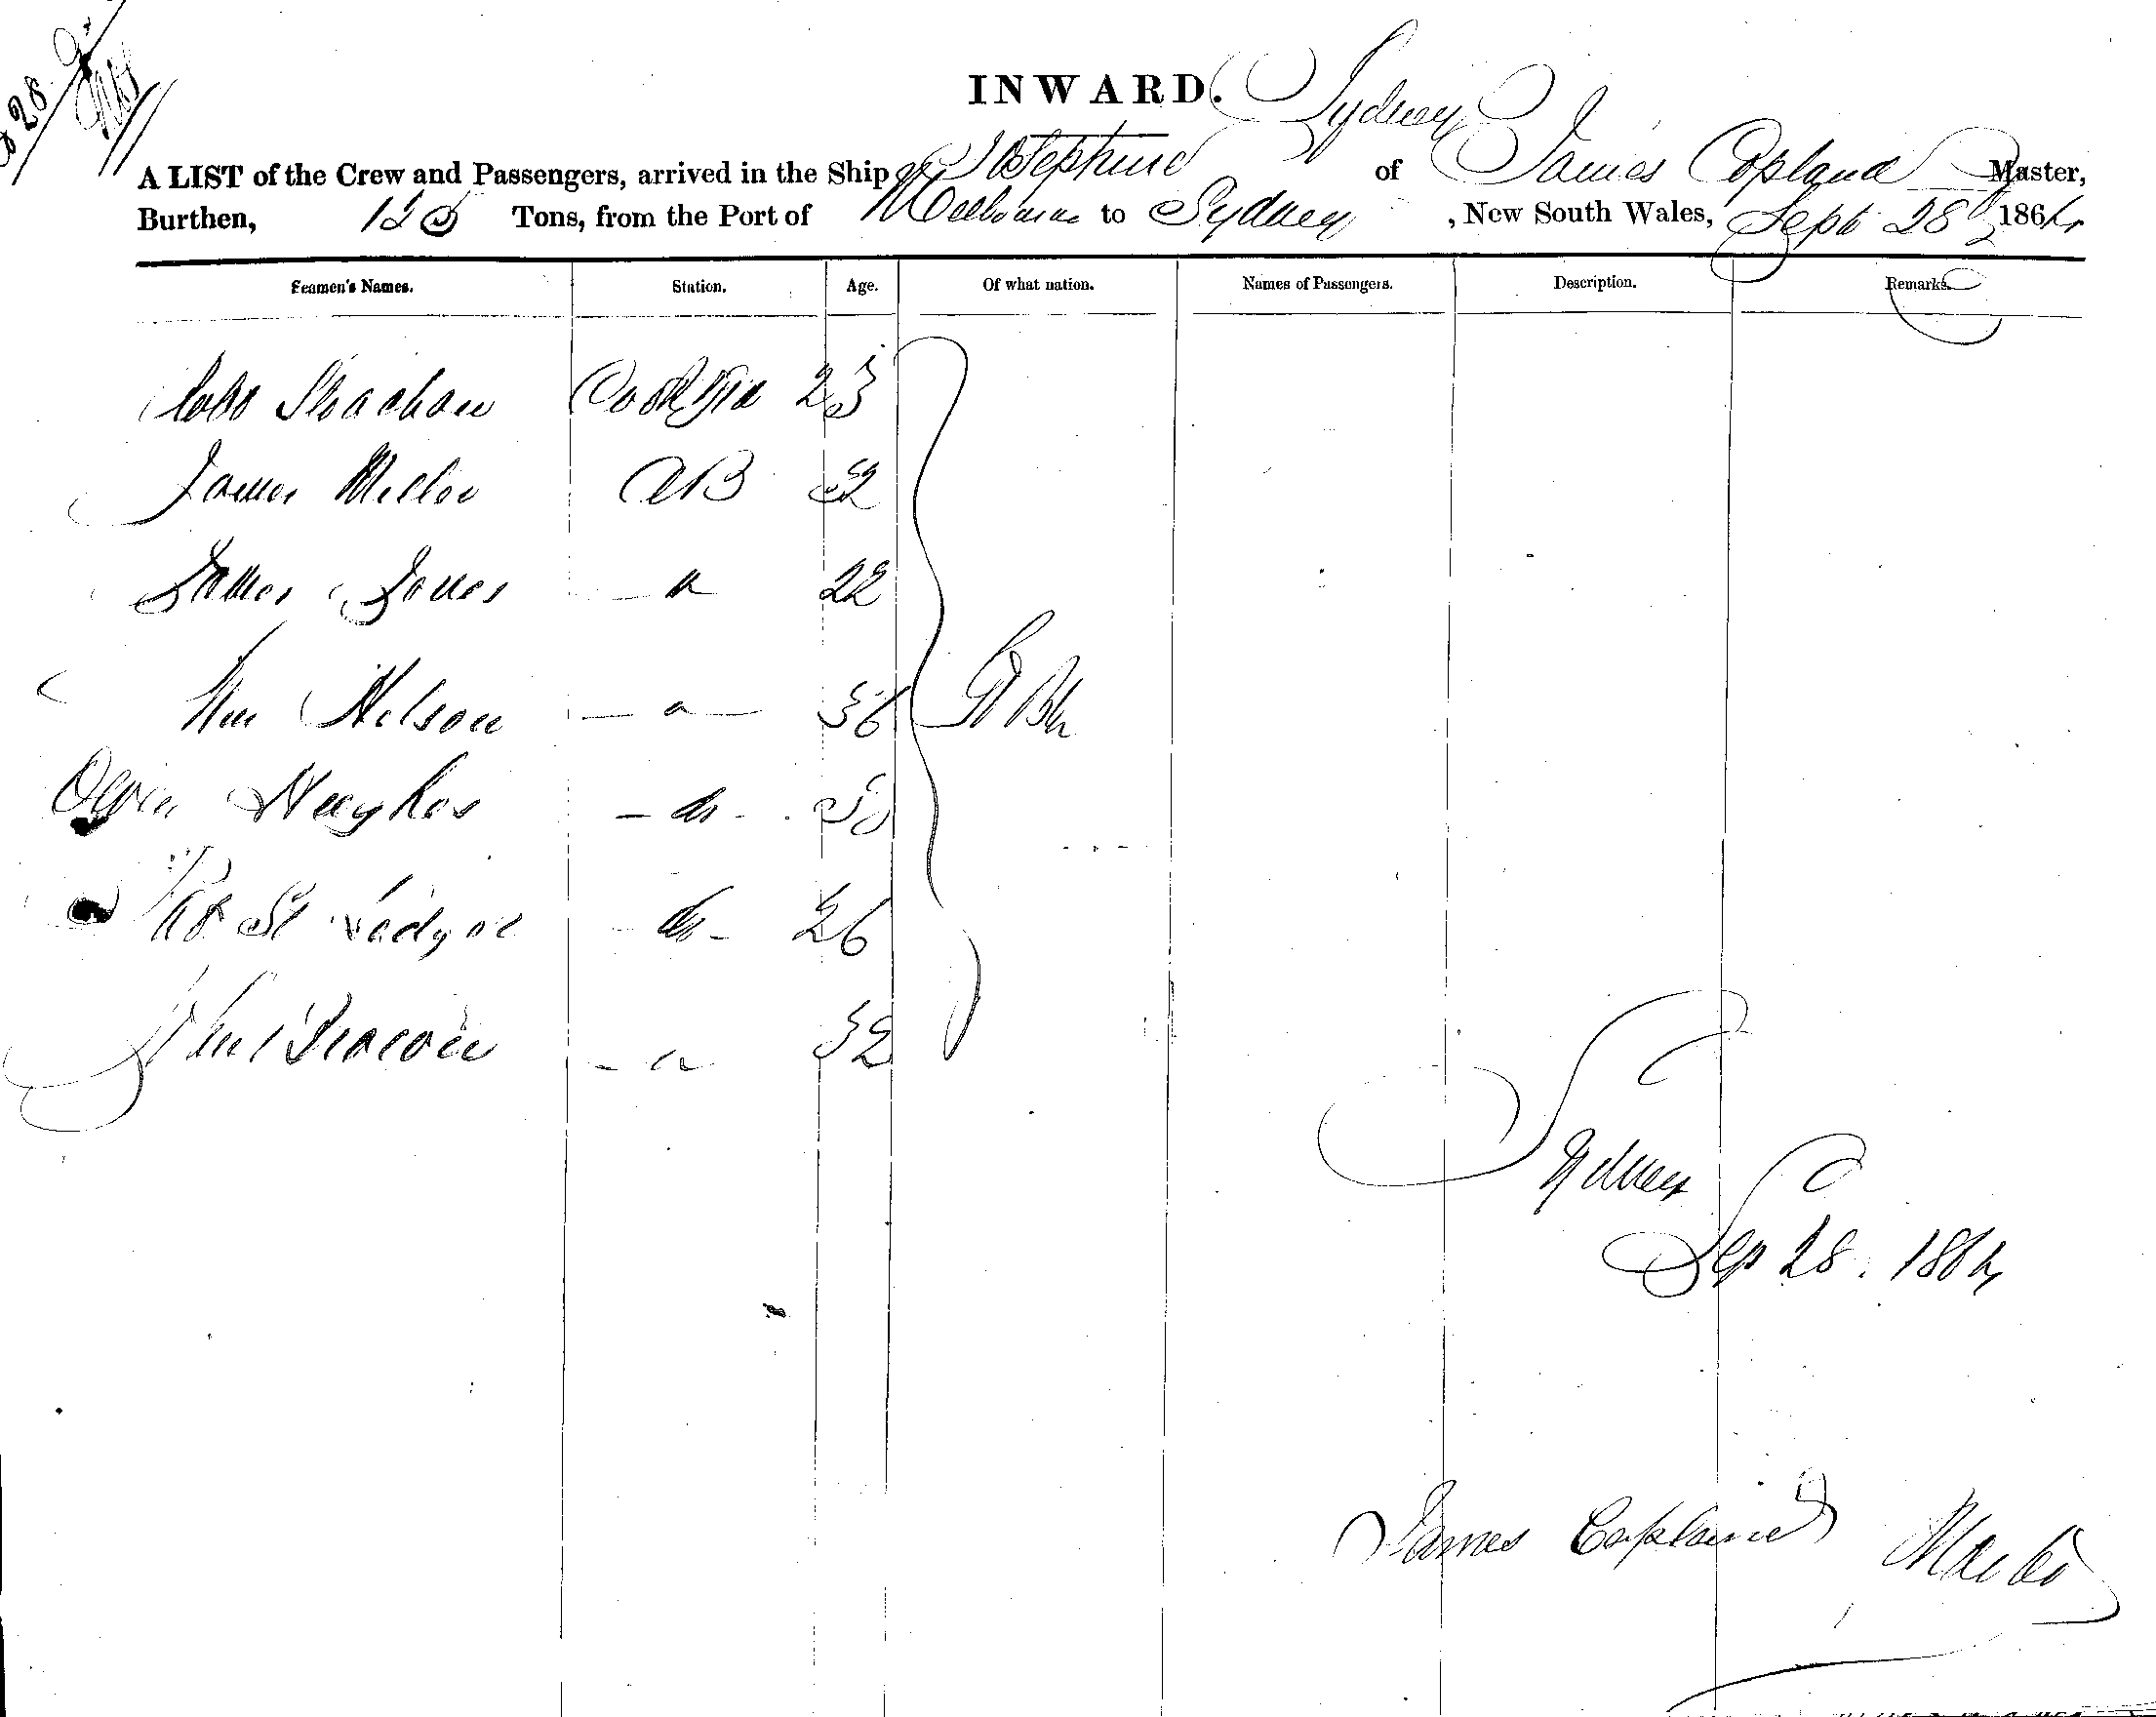 28
INWARD.
A LIST of the Crew and Passengers, arrived in the Ship Josephine of Sydney James Copland Master,
Burthen, 125 Tons, from the Port of Melbourne to Sydney, New South Wales, Sept 28 1864
Seamen's Names. Station. Age. Of what nation. Names of Passengers. Description. Remarks.
Strachan 23
James Miller AB 32
James Jones 22
Wm Nelson 36 Gt Bn
Owen Hughes - do - 30
St - do - 26
32
Sydney
Sep 28. 1864
James Copland Master